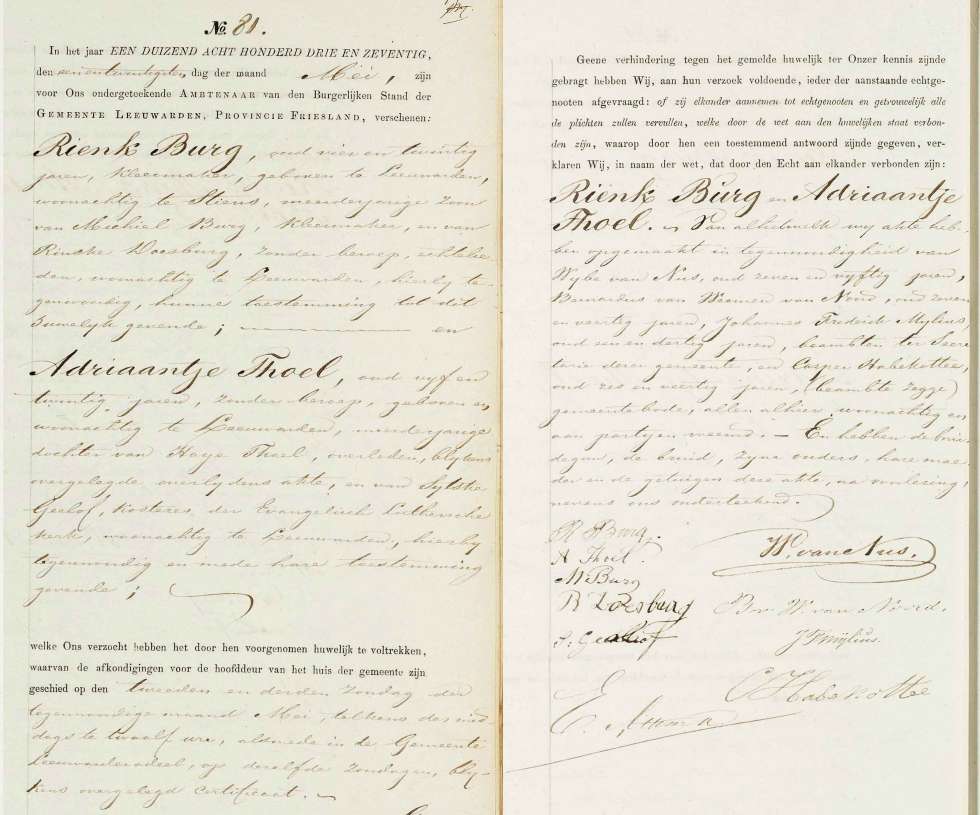 No. 81.
In het jaar EEN DUIZEND ACHT HONDERD DRIE EN ZEVENTIG,
den zevenentwintigsten dag der maand Mei, zijn
voor Ons ondergeteekende AMBTENAAR van den Burgerlijken Stand der
GEMEENTE LEEUWARDEN, PROVINCIE FRIESLAND, verschenen:
Rienk Burg, oud vier en twintig
jaren, kleermaker, geboren te Leeuwarden,
woonachtig te Stiens, meerderjarige zoon
van Michiel Burg, kleermaker, en van
Rinske Doesburg, zonder beroep, echtelie-
den, woonachtig te Leeuwarden, hierby te-
genwoordig, hunne toestemming tot dit
huwelyk gevende; en
Adriaantje Thoel, oud vyf en
twintig jaren, zonder beroep, geboren en
woonachtig te Leeuwarden, meerderjarige
dochter van Haye Thoel, overleden, blykens
overgelegde overlydens akte, en van Sytske
Geelof, kosteres der Evangelisch Luthersche
kerk, woonachtig te Leeuwarden, hierby
tegenwoordig en mede hare toestemming
gevende;
welke Ons verzocht hebben het door hen voorgenomen huwelijk te voltrekken,
waarvan de afkondigingen voor de hoofddeur van het huis der gemeente zijn
geschied op den tweeden en derden Zondag der
tegenwoordige maand Mei, telkens des mid-
dags te twaalf ure, alsmede in de Gemeente
Leeuwarderadeel, op dezelfde Zondagen, bly-
kens overgelegd certificaat.
Geene verhindering tegen het gemelde huwelijk ter Onzer kennis zijnde
gebragt hebben Wij, aan hun verzoek voldoende, ieder der aanstaande echtge-
nooten afgevraagd: of zij elkander aannemen tot echtgenooten en getrouwelijk alle
de plichten zullen vervullen, welke door de wet aan den huwelijken staat verbon-
den zijn, waarop door hen een toestemmend antwoord zijnde gegeven, ver-
klaren Wij, in naam der wet, dat door den Echt aan elkander verbonden zijn:
Rienk Burg en Adriaantje
Thoel. Van al hetwelk wy akte heb-
ben opgemaakt in tegenwoordigheid van
Wybe van Nus, oud zeven en vyftig jaren,
Bernardus van Weemen van Noord, oud zeven
en veertig jaren, Johannes Frederik Mylius,
oud een en dertig jaren, beambten ter Secre-
tarie dezer gemeente, en Casper Habekottee,
oud zes en veertig jaren, (beambte zegge)
gemeentebode, allen alhier woonachtig en
aan partyen vreemd. — En hebben de brui-
degom, de bruid, zyne ouders, hare moe-
der en de getuigen deze akte, na voorlezing,
nevens ons onderteekend.
R Burg.
A Thoel
M. Burg
R Doesburg
S. Geelhof
W. van Nus.
B. v. W. van Noord.
J F Mylius.
C Habekottee